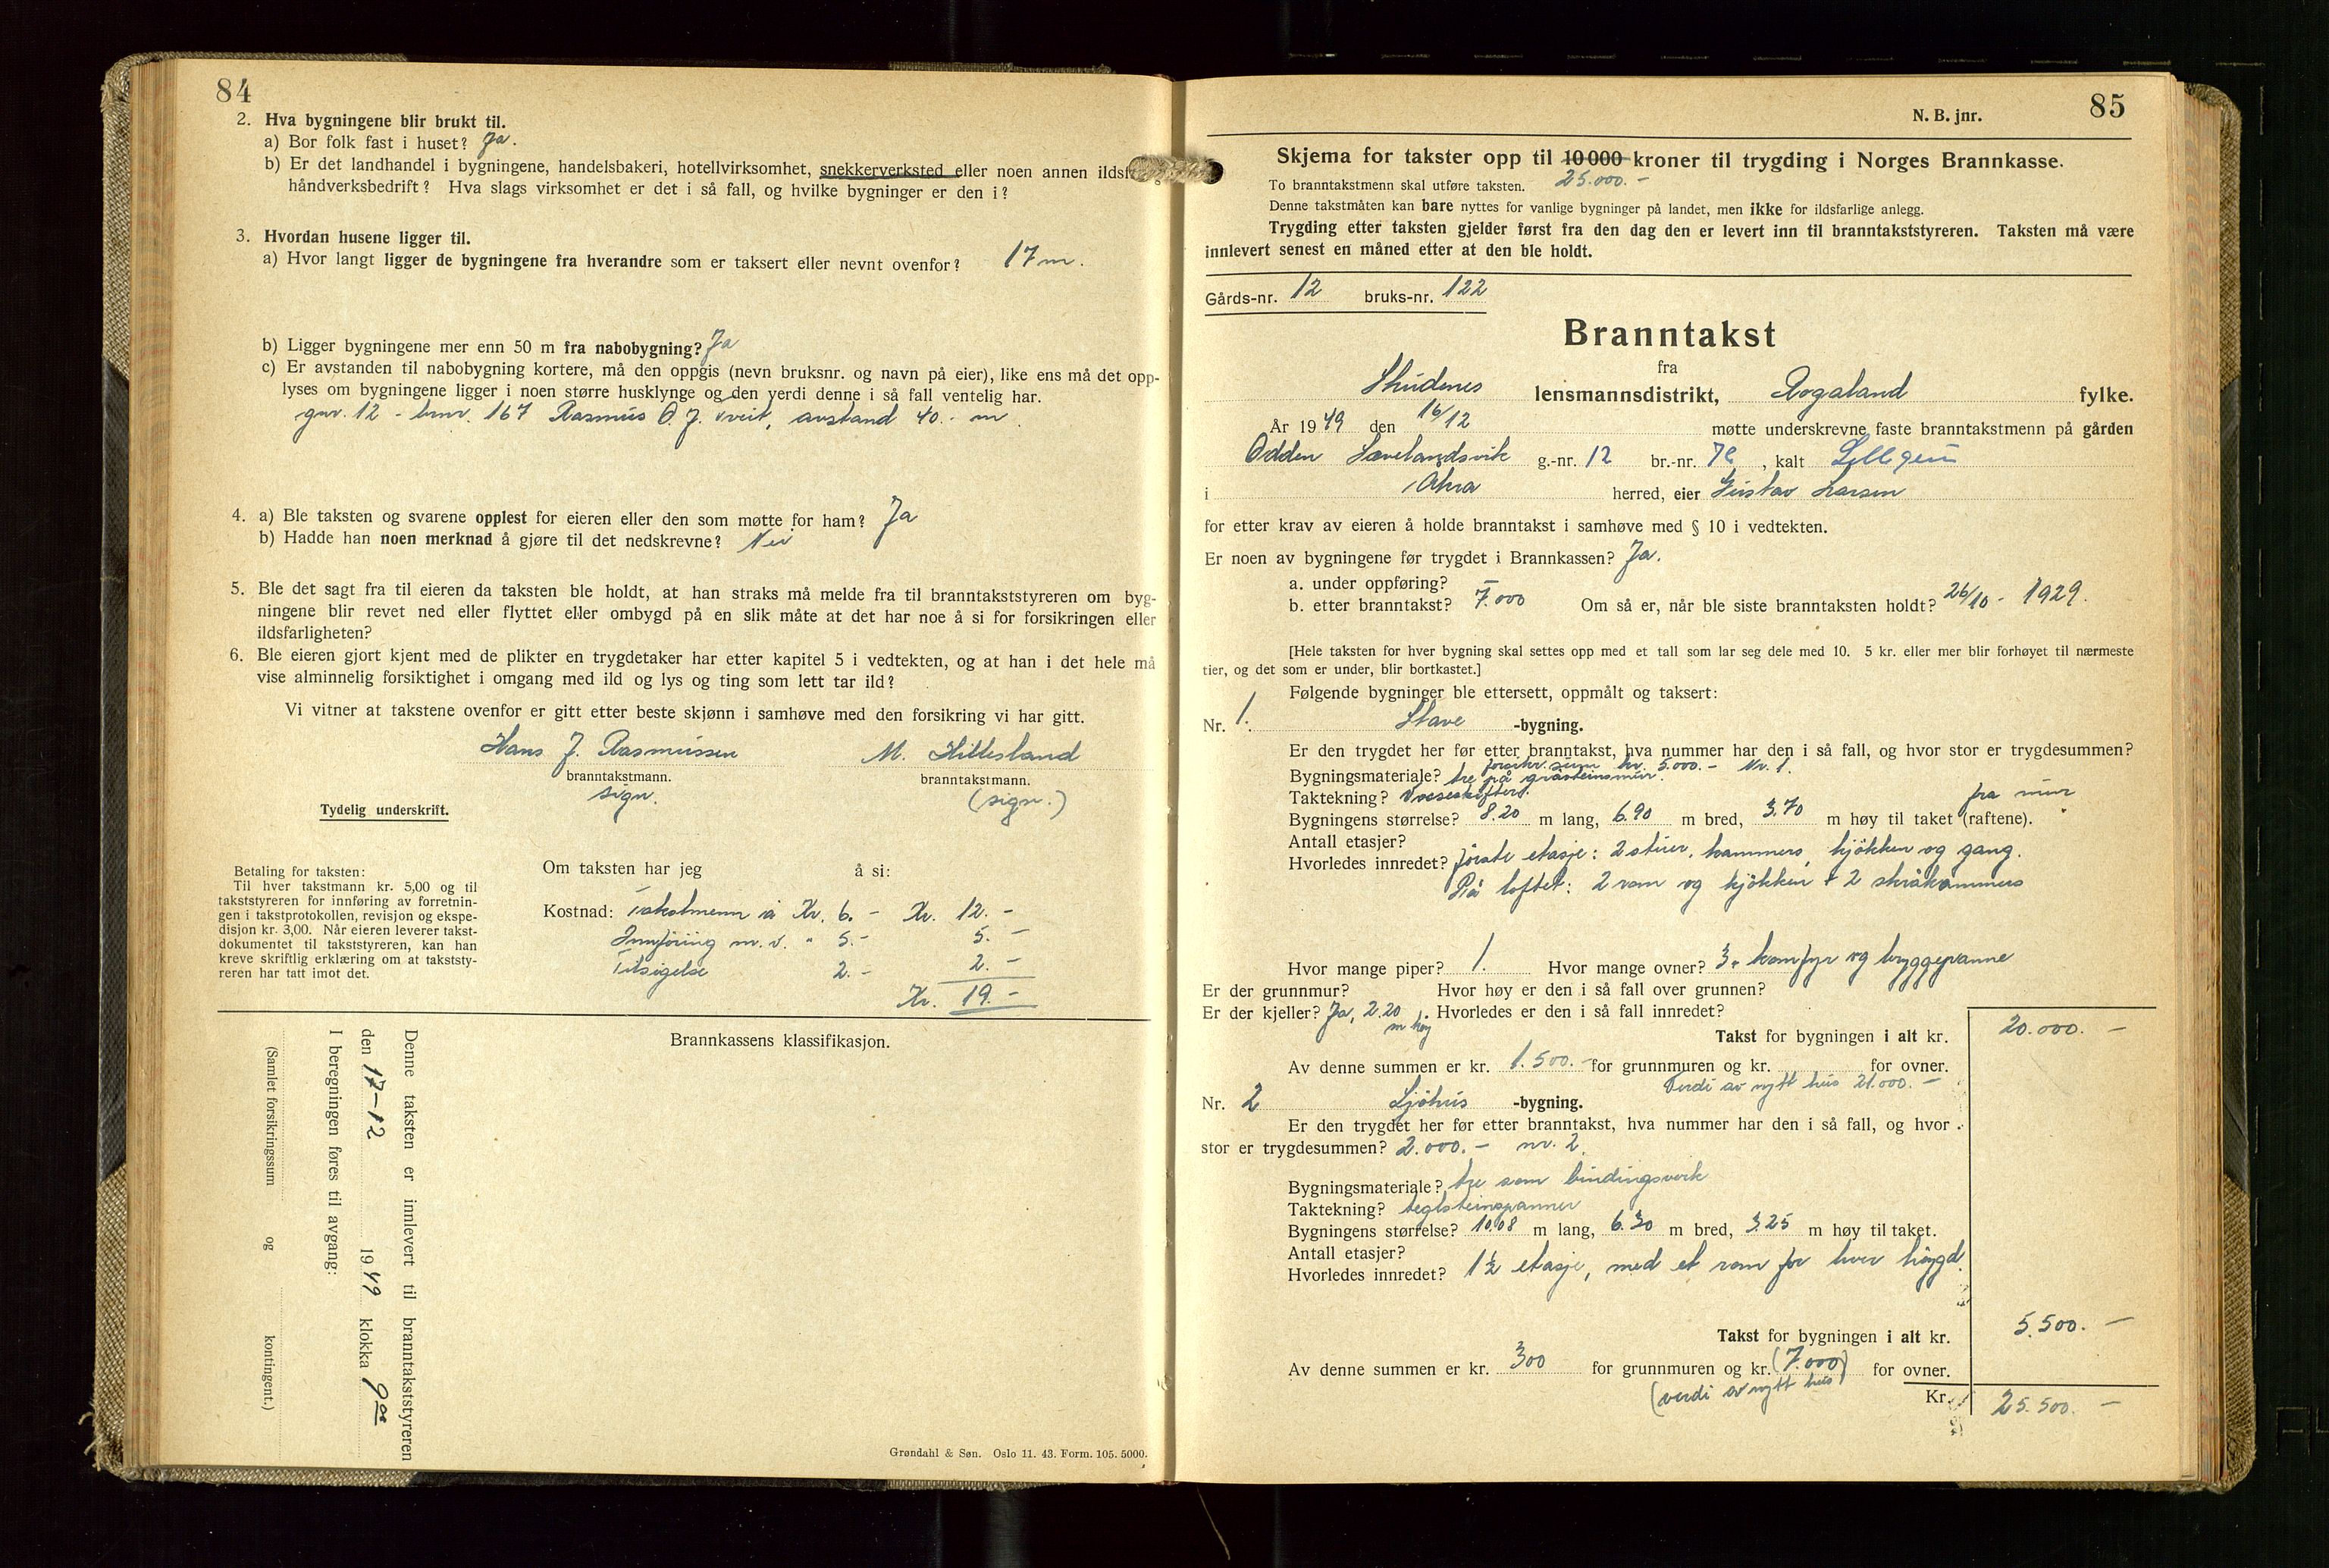 84
2. Hva bygningene blir brukt til.
a) Bor folk fast i huset? Ja.
b) Er det landhandel i bygningene, handelsbakeri, hotellvirksomhet, snekkerverksted eller noen annen ildsf
håndverksbedrift? Hva slags virksomhet er det i så fall, og hvilke bygninger er den i?
3. Hvordan husene ligger til.
a) Hvor langt ligger de bygningene fra hverandre som er taksert eller nevnt ovenfor? 17 m.
b) Ligger bygningene mer enn 50 m fra nabobygning? Ja
c) Er avstanden til nabobygning kortere, må den oppgis (nevn bruksnr. og navn på eier), like ens må det opp-
lyses om bygningene ligger i noen større husklynge og den verdi denne i så fall ventelig har.
gnr. 12 - bnr. 167 Rasmus O. J. kveit, avstand 40.- m.
4. a) Ble taksten og svarene opplest for eieren eller den som møtte for ham? Ja
b) Hadde han noen merknad å gjøre til det nedskrevne? Nei
5. Ble det sagt fra til eieren da taksten ble holdt, at han straks må melde fra til branntakststyreren om byg-
ningene blir revet ned eller flyttet eller ombygd på en slik måte at det har noe å si for forsikringen eller
ildsfarligheten?
6. Ble eieren gjort kjent med de plikter en trygdetaker har etter kapitel 5 i vedtekten, og at han i det hele må
vise alminnelig forsiktighet i omgang med ild og lys og ting som lett tar ild?
Vi vitner at takstene ovenfor er gitt etter beste skjønn i samhøve med den forsikring vi har gitt.
Hans J. Rasmussen M. Hillesland
branntakstmann. branntakstmann.
sign. (sign.)
Tydelig underskrift.
Betaling for taksten:
Til hver takstmann kr. 5,00 og til
takststyreren for innføring av forretnin-
gen i takstprotokollen, revisjon og ekspe-
disjon kr. 3,00. Når eieren leverer takst-
dokumentet til takststyreren, kan han
kreve skriftlig erklæring om at takststy-
reren har tatt imot det.
Om taksten har jeg å si:
Kostnad: Takstmenn á Kr. 6.- Kr. 12.-
Innföring m. v. " 5.- 5.-
Tilsigelse 2.- 2.-
Kr. 19.-
Brannkassens klassifikasjon.
Denne taksten er innlevert til branntakststyreren
den 17-12 1949 klokka 9
I beregningen føres til avgang:
(Samlet forsikringssum og kontingent.)
Grøndahl & Søn. Oslo 11. 43. Form. 105. 5000.
N. B. jnr. 85
Skjema for takster opp til 10 000 kroner til trygding i Norges Brannkasse.
To branntakstmenn skal utføre taksten. 25.000.-
Denne takstmåten kan bare nyttes for vanlige bygninger på landet, men ikke for ildsfarlige anlegg.
Trygding etter taksten gjelder først fra den dag den er levert inn til branntakststyreren. Taksten må være
innlevert senest en måned etter at den ble holdt.
Gårds-nr. 12 bruks-nr. 122
Branntakst
fra
Skudenes lensmannsdistrikt, Rogaland fylke.
År 1949 den 16/12 møtte underskrevne faste branntakstmenn på gården
Odden Sævelandsvik g.-nr. 12 br.-nr. , kalt
i Åkra herred, eier Gustav Larsen
for etter krav av eieren å holde branntakst i samhøve med § 10 i vedtekten.
Er noen av bygningene før trygdet i Brannkassen? Ja.
a. under oppføring?
b. etter branntakst? 7.000 Om så er, når ble siste branntaksten holdt? 26/10 - 1929.
[Hele taksten for hver bygning skal settes opp med et tall som lar seg dele med 10. 5 kr. eller mer blir forhøyet til nærmeste
tier, og det som er under, blir bortkastet.]
Følgende bygninger ble ettersett, oppmålt og taksert:
Nr. 1. Stave -bygning.
Er den trygdet her før etter branntakst, hva nummer har den i så fall, og hvor stor er trygdesummen?
forsikr.sum kr. 5.000.- Nr. 1.
Bygningsmateriale? tre på gråsteinsmur.
Taktekning?
Bygningens størrelse? 8.20 m lang, 6.90 m bred, 3.70 m høy til taket (raftene). fra mur
Antall etasjer?
Hvorledes innredet? förste etasje: 2 stuer, kammers, kjökken og gang.
På loftet: 2 rom og kjökken + 2 skråkammers
Hvor mange piper? 1. Hvor mange ovner? 3, komfyr og bryggepanne
Er der grunnmur? Hvor høy er den i så fall over grunnen?
Er der kjeller? Ja, 2.20 m høy. Hvorledes er den i så fall innredet?
Takst for bygningen i alt kr. 20.000.-
Av denne summen er kr. 1.500.- for grunnmuren og kr. for ovner.
Verdi av nytt hus 21.000.-
Nr. 2 Sjöhus -bygning.
Er den trygdet her før etter branntakst, hva nummer har den i så fall, og hvor
stor er trygdesummen? 2.000.- nr. 2.
Bygningsmateriale? tre som bindingsverk
Taktekning? teglsteinspanner
Bygningens størrelse? 10.08 m lang, 6.30 m bred, 3.25 m høy til taket.
Antall etasjer?
Hvorledes innredet? 1½ etasje, med et rom for hver høgd.
Takst for bygningen i alt kr. 5.500.-
Av denne summen er kr. 300 for grunnmuren og kr. (7.000) for ovner.
(verdi av nytt hus)
Kr. 25.500.-